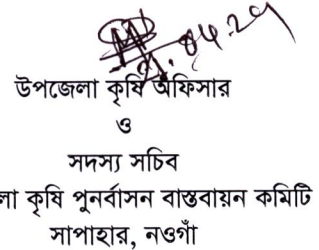 উপজেলা কৃষি অফিসার
ও
সদস্য সচিব
লা কৃষি পুনর্বাসন বাস্তবায়ন কমিটি
সাপাহার, নওগাঁ